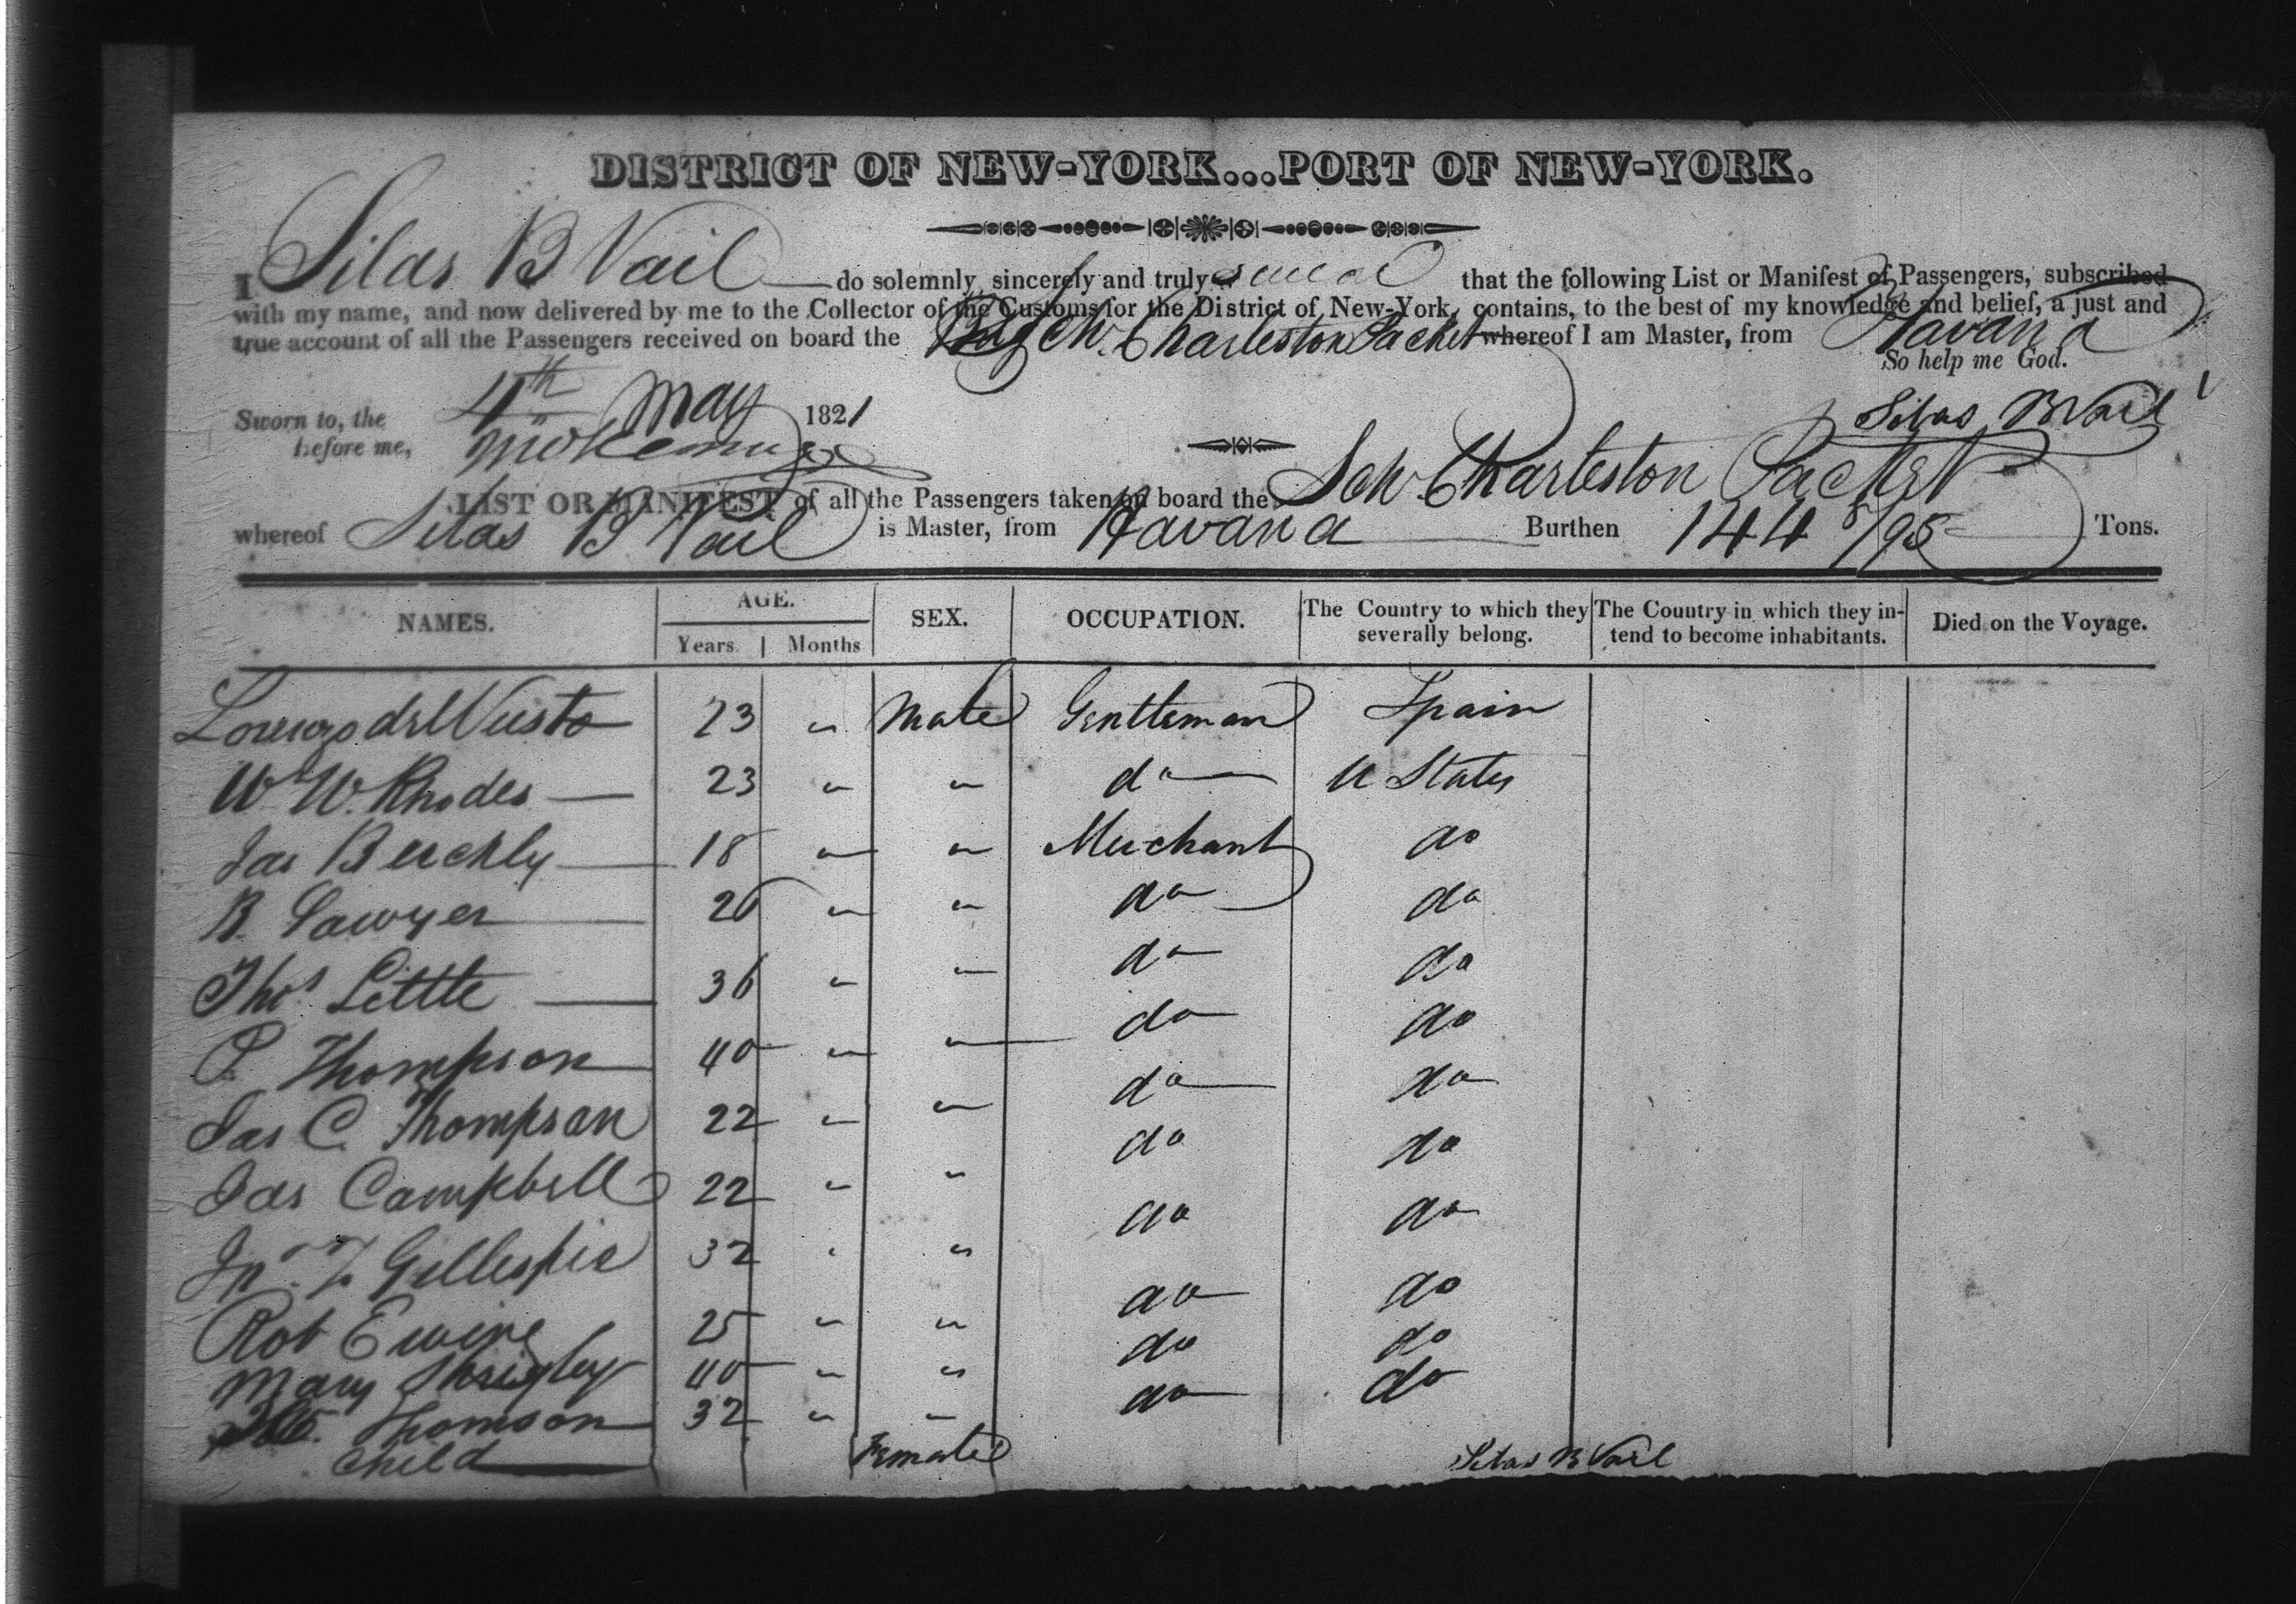 DISTRICT OF NEW-YORK...PORT OF NEW-YORK.
I Silas B Vail do solemnly, sincerely and truly swear that the following List or Manifest of Passengers, subscribed
with my name, and now delivered by me to the Collector of the Customs for the District of New-York, contains, to the best of my knowledge and belief, a just and
true account of all the Passengers received on board the Sch. Charleston Packet whereof I am Master, from Havana
So help me God.
Sworn to, the 4th May 1821 Silas B Vail
before me,
LIST OR MANIFEST of all the Passengers taken on board the Sch. Charleston Packet
whereof Silas B Vail is Master, from Havana Burthen 144 /95 Tons.
NAMES. AGE. Years. Months SEX. OCCUPATION. The Country to which they severally belong. The Country in which they intend to become inhabitants. Died on the Voyage.
Lorenzo del 23 " Male Gentleman Spain
Wm W. Rhodes 23 " " do U States
Jas 18 " " Merchant do
B. Sawyer 26 " " do do
Thos Little 36 " " do do
P. Thompson 40 " " do do
Jas C. Thompson 22 " " do do
Jas Campbell 22 " " do do
Jno Gillespie 32 " " do do
Rob Ewing 25 " " do do
Mary 40 " " do do
Thomson 32 " " do do
child Female
Silas B Vail